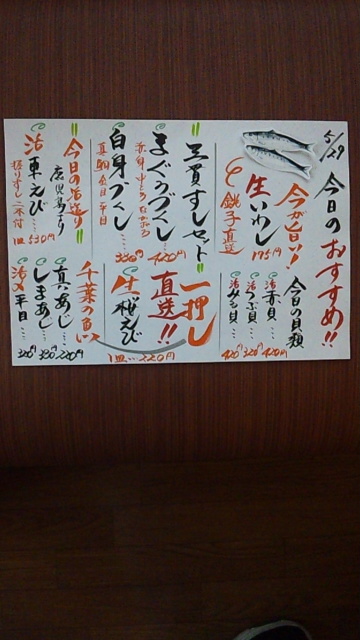 5/29
今日のおすすめ!!
今が旨い!
生いわし
175円
銚子直送
今日の貝類
活赤貝…420円
活つぶ貝…320円
活みる貝…420円
三貫すしセット
まぐろづくし…420円
赤身 中とろ
白身づくし…
真鯛 平目
一押し
直送!!
生桜えび
1皿…220円
今日の活造り
鹿児島より
活車えび…
握りずし 二本付
1皿530円
千葉の魚
真あじ…220円
しまあじ…380円
活〆平目…320円